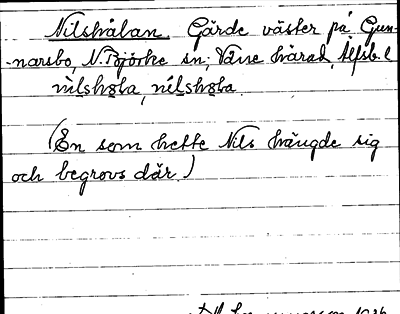 Nilshålan. Gärde väster på Gun-
-narsbo, N. Björke sn; Väne härad, Älfsb. l
nilshola, nilshola.
(En som hette Nils hängde sig
och begrovs där.)